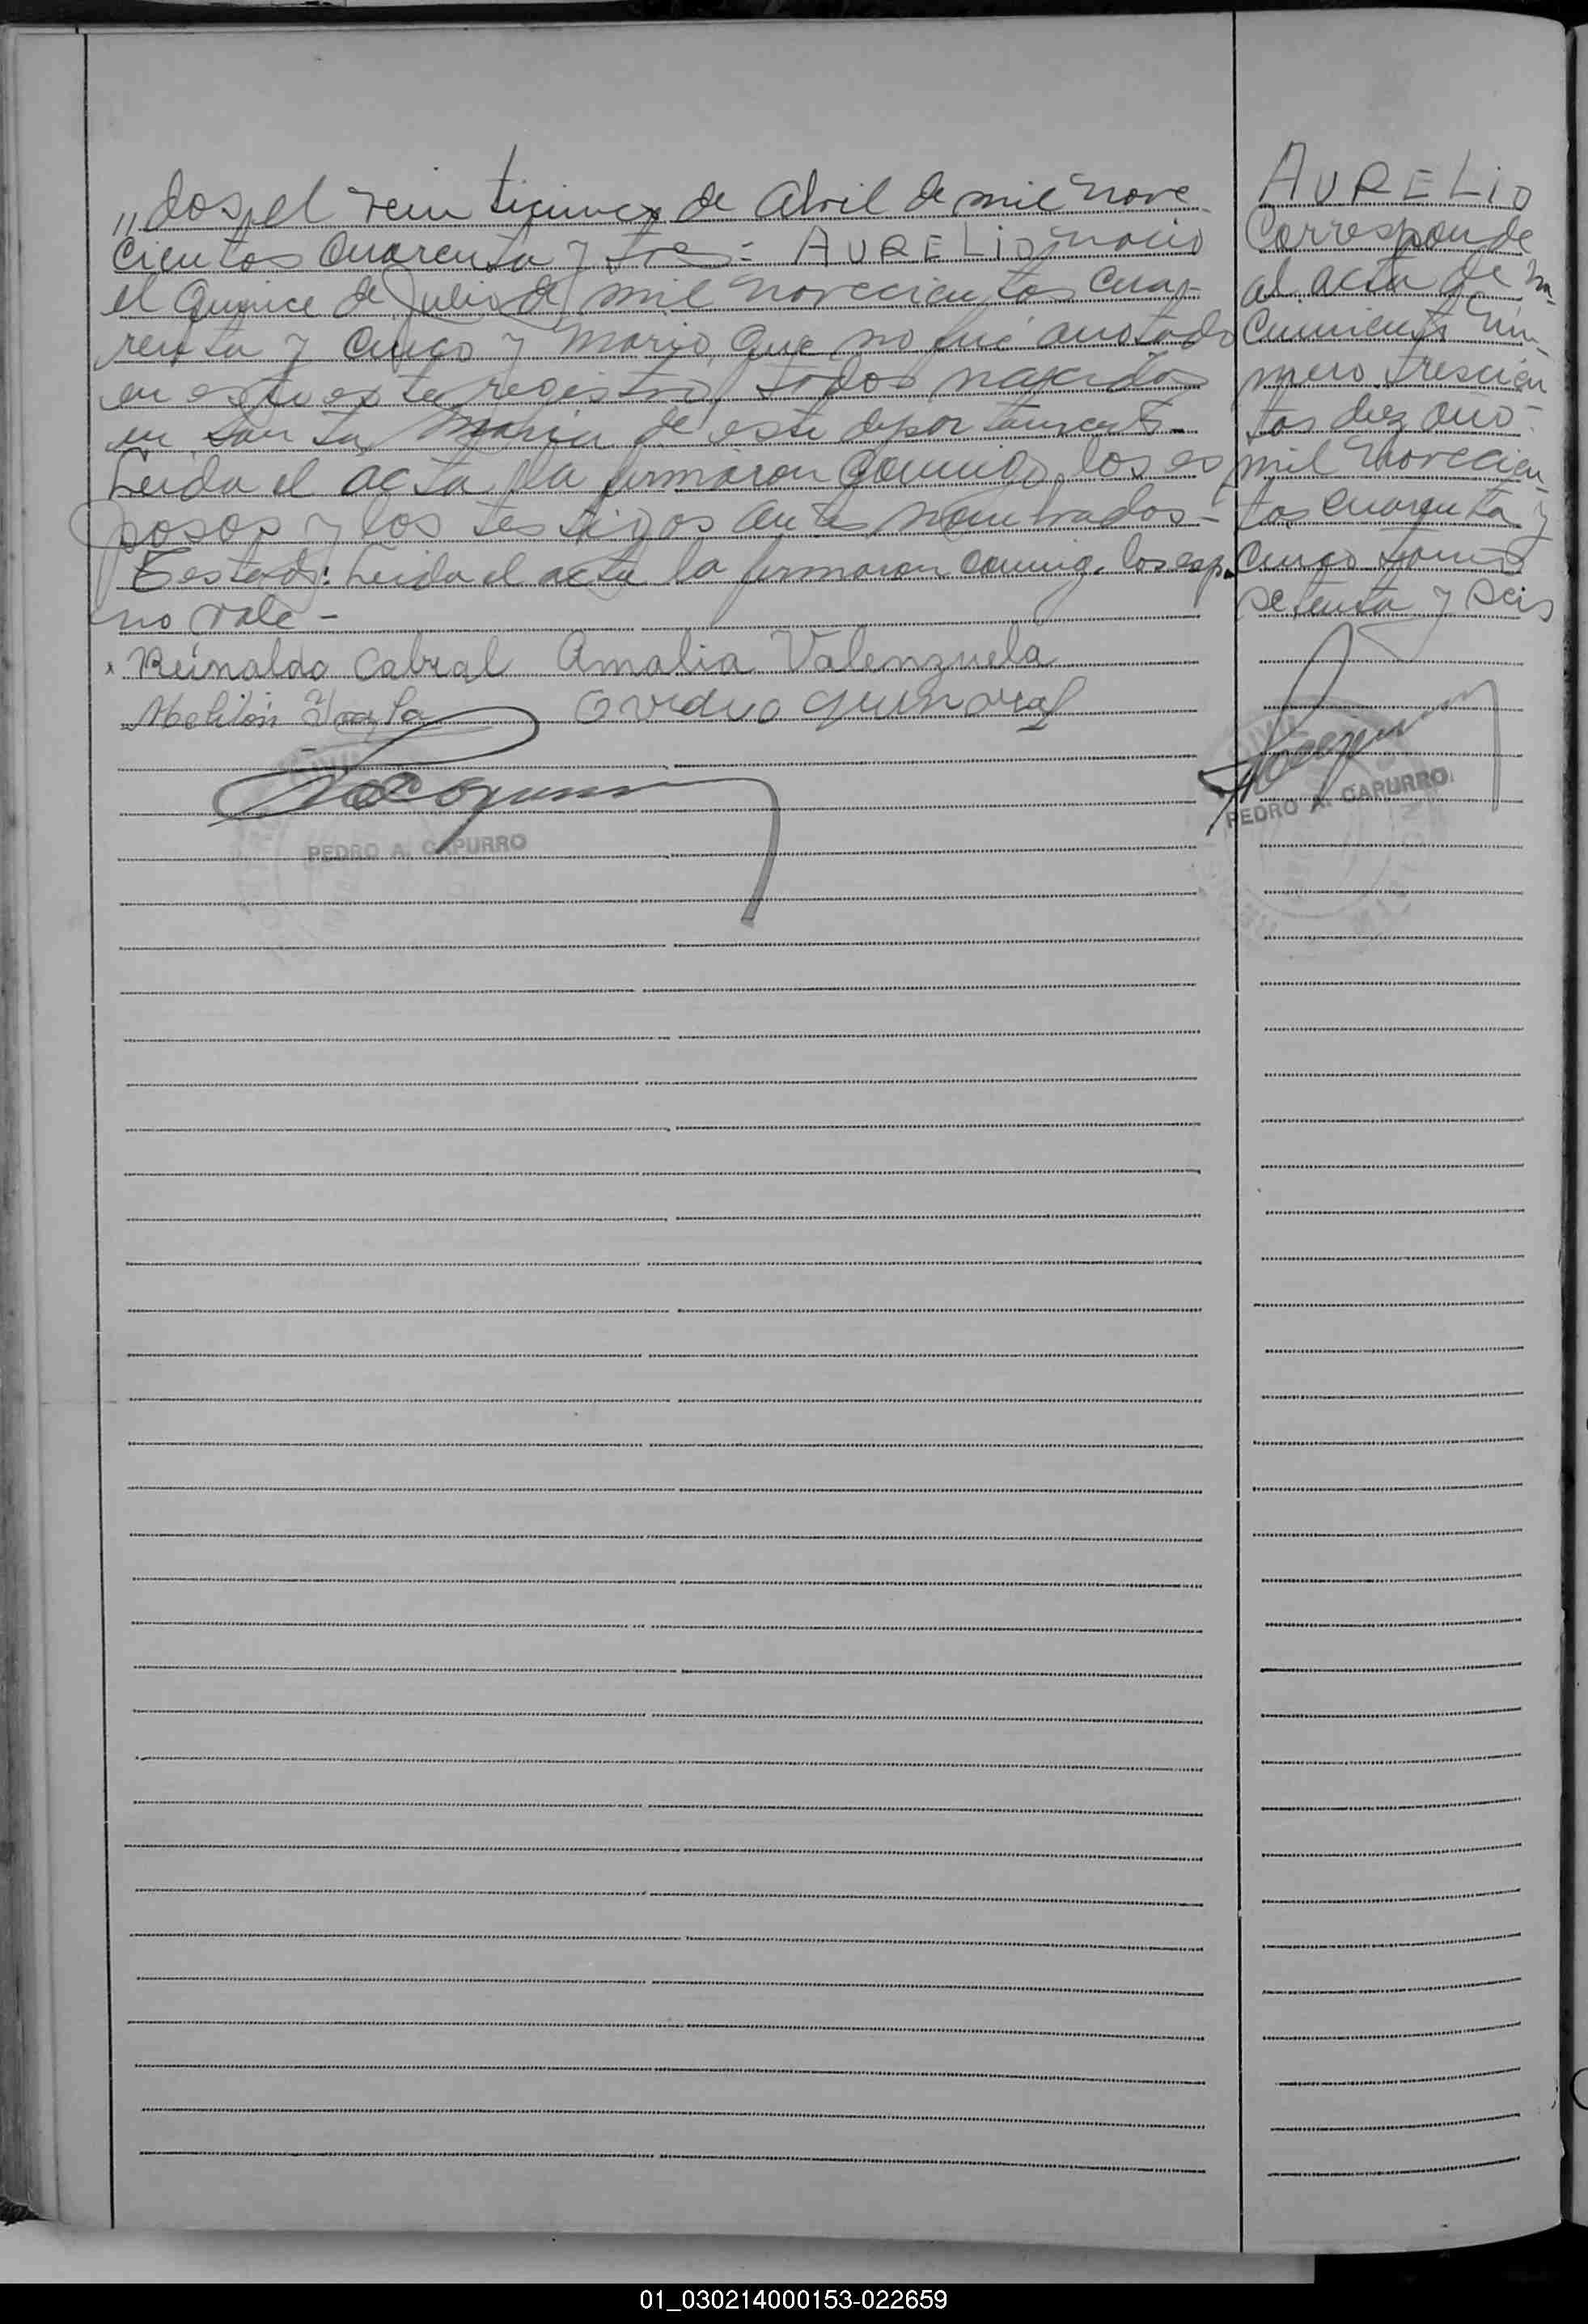 ,, dos, el veinticinco de Abril de mil nove-
cientos cuarenta y tres - AURELIO, nació
el Quince de Julio de mil novecientos cua-
renta y cinco y Mario que no fué anotado
en este registro todos nacidos
en Santa Maria de este departamento -
Leida el acta la firmaron conmigo, los es
posos y los testigos antes nombrados -
Testado: Leida el acta la firmaron conmig. los esp.
no vale -
Reinaldo Cabral Amalia Valenzuela
Melitón Ovidio
PEDRO A. CAPURRO
AURELIO
Corresponde
al acta de na-
cimiento nú-
mero trescien
tos diez año -
mil novecien-
tos cuarenta y
cinco tomo
setenta y seis
PEDRO A. CAPURRO
01_030214000153-022659